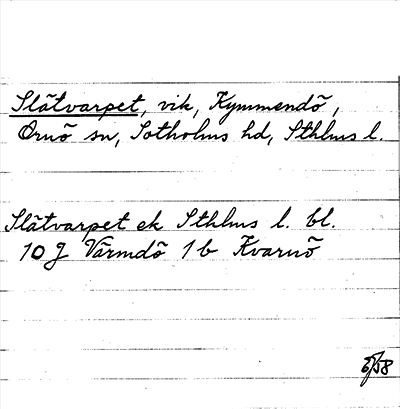 Slätvarpet, vik, Kymmendö,
Ornö sn, Sotholms hd, Sthlms l.
Slätvarpet ek Sthlms l. bl.
10J Värmdö 1b Kvarnö